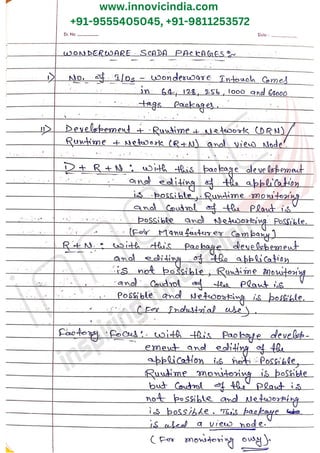 www.innovicindia.com
+91-9555405045, +91-9811253572
Ex. No.
Date :
WONDERWARE SCADA PACKAGES:-
i) No. of I/Os - wonderware Intouch Comes
in 64, 128, 256, 1000 and 64000
tags Packages.
ii) Development + Runtime + Network (DRN)/
Runtime + Network (R+N) and View Node
D + R + N : with this package development
and editing of the application
is possible, Runtime monitoring
and Control of the Plant is
possible and Networking Possible.
(For Manufacturer Company)
R + N : with this Package development
and editing of the application
is not possible, Runtime monitoring
and Control of the Plant is
Possible and Networking is possible.
(For Industrial use).
Factory Focus: with this Package develop-
ement and editing of the
application is not Possible,
Runtime monitoring is possible
but Control of the Plant is
not possible and Networking
is possible. This package
is used a view node.
(For monitoring only).